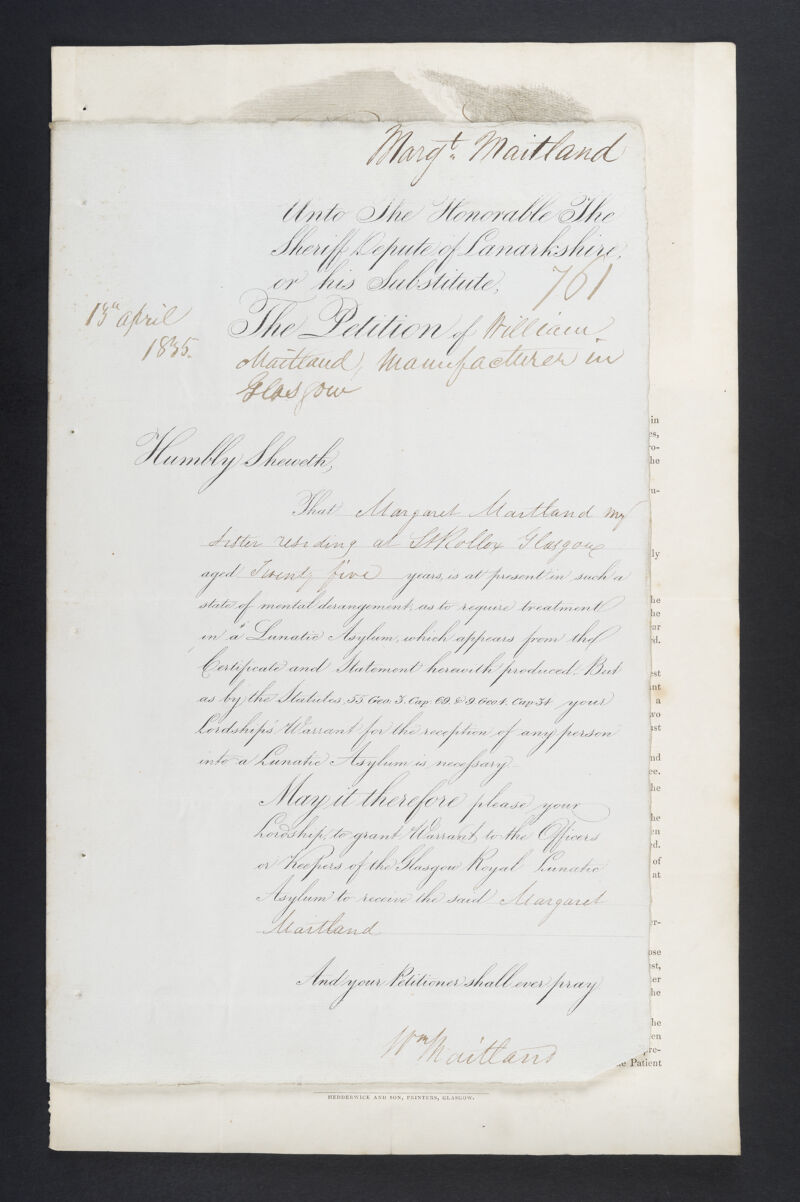 Margt. Maitland
Unto The Honorable The
Sheriff Depute of Lanarkshire,
or his Substitute,
761
13th april
1835.
The Petition of William
Maitland, Manufacturer in
Glasgow
Humbly Sheweth,
That Margaret Maitland my
sister residing at St Rollox Glasgow
aged Twenty five years, is at present in such a
state of mental derangement, as to require treatment
in a Lunatic Asylum, which appears from the
Certificate and Statement herewith produced. But
as by the Statutes, 55 Geo. 3. Cap. 69. & 9 Geo 4. Cap 34 your
Lordship's Warrant for the reception of any person
into a Lunatic Asylum is necessary
May it therefore please your
Lordship, to grant Warrant, to the Officers
or Keepers of the Glasgow Royal Lunatic
Asylum to receive the said Margaret
Maitland
And your Petitioner shall ever pray
Wm Maitland
in
es,
ro-
he
ru-
ly
he
he
or
d.
est
nt
a
wo
ist
nd
ce.
he
he
en
ed.
of
at
er-
ose
st,
er
he
he
en
re-
Patient
HEDDERWICK AND SON, PRINTERS, GLASGOW.